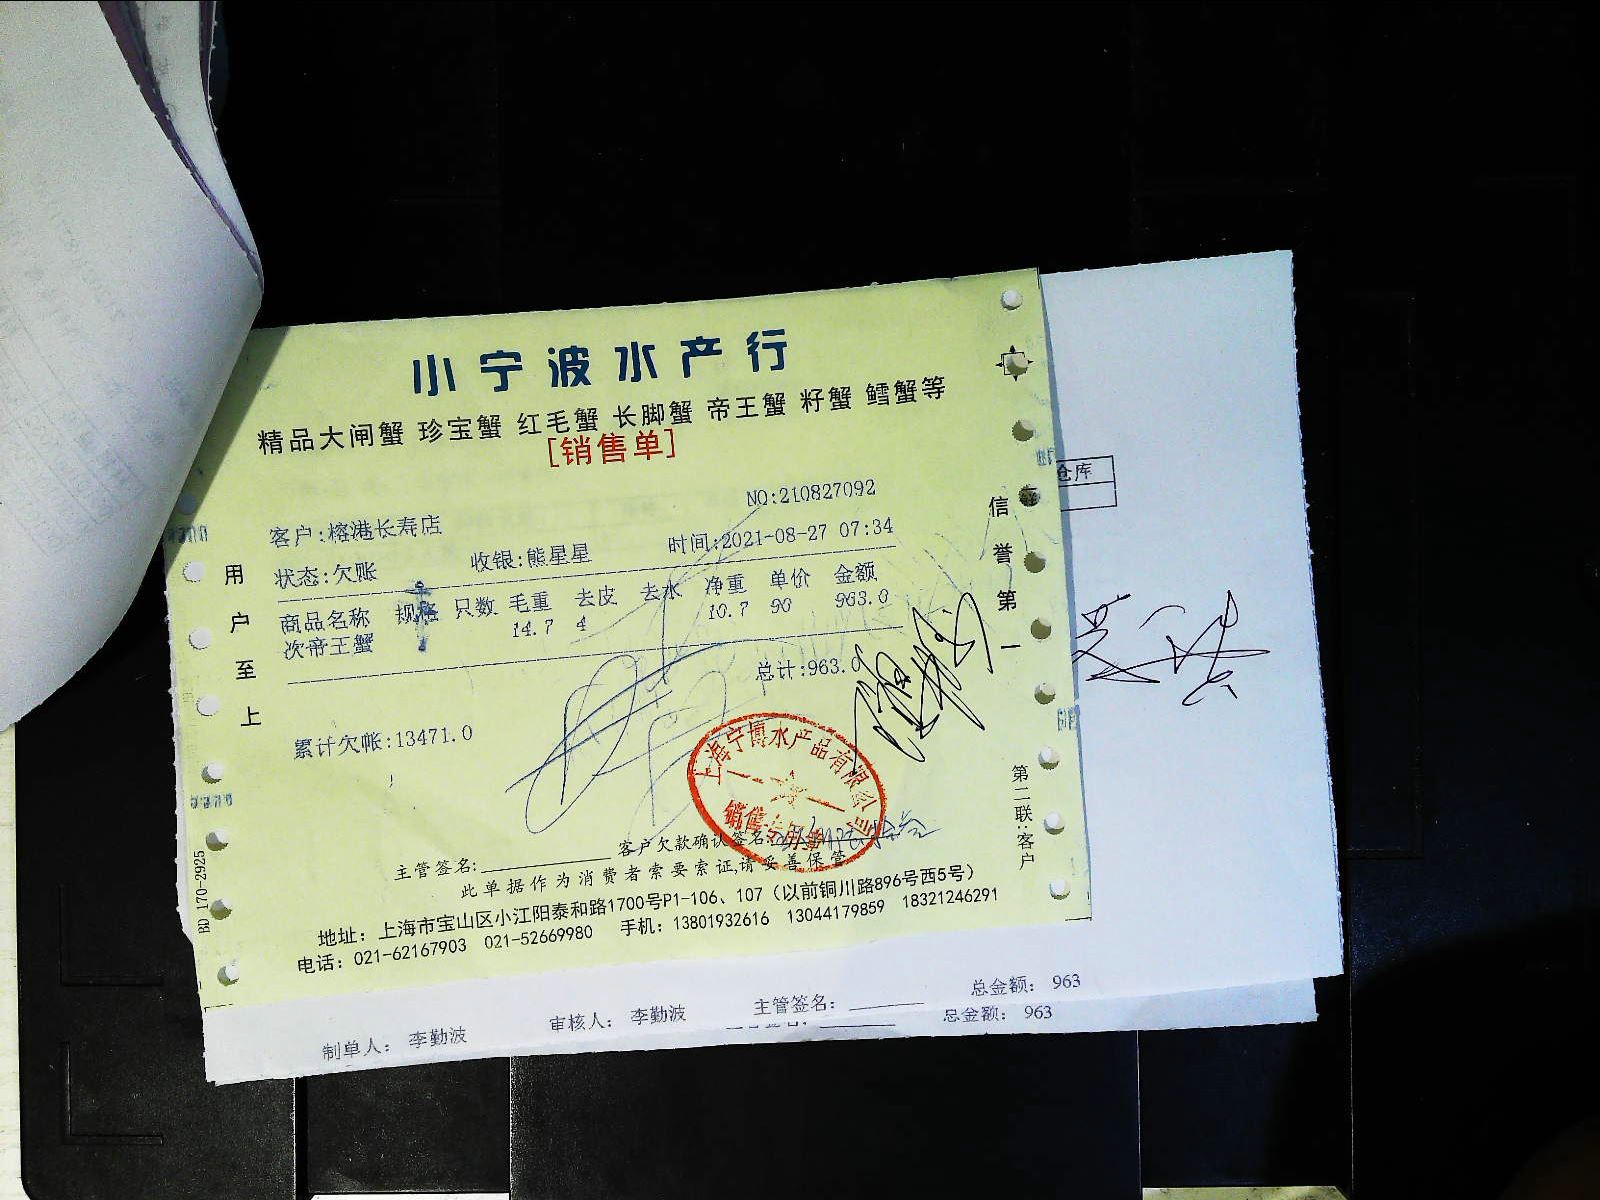 小宁波水产行
精品大闸蟹 珍宝蟹 红毛蟹 长脚蟹 帝王蟹 籽蟹 鳕蟹等
[销售单]
NO:210827092
客户:榕港长寿店
状态:欠账 收银:熊星星 时间:2021-08-27 07:34
商品名称 规格 只数 毛重 去皮 去水 净重 单价 金额
次帝王蟹 14.7 4 10.7 90 963.0
总计:963.0
累计欠帐:13471.0
用户至上
信誉第一
第二联:客户
上海宁博水产品有限公司
销售专用章
主管签名: 客户欠款确认签名:
此单据作为消费者索要索证,请妥善保管
地址：上海市宝山区小江阳泰和路1700号P1-106、107（以前铜川路896号西5号）
电话：021-62167903 021-52669980 手机：13801932616 13044179859 18321246291
BD 170-2925
仓库
制单人： 李勤波 审核人： 李勤波 主管签名： 总金额： 963
总金额： 963